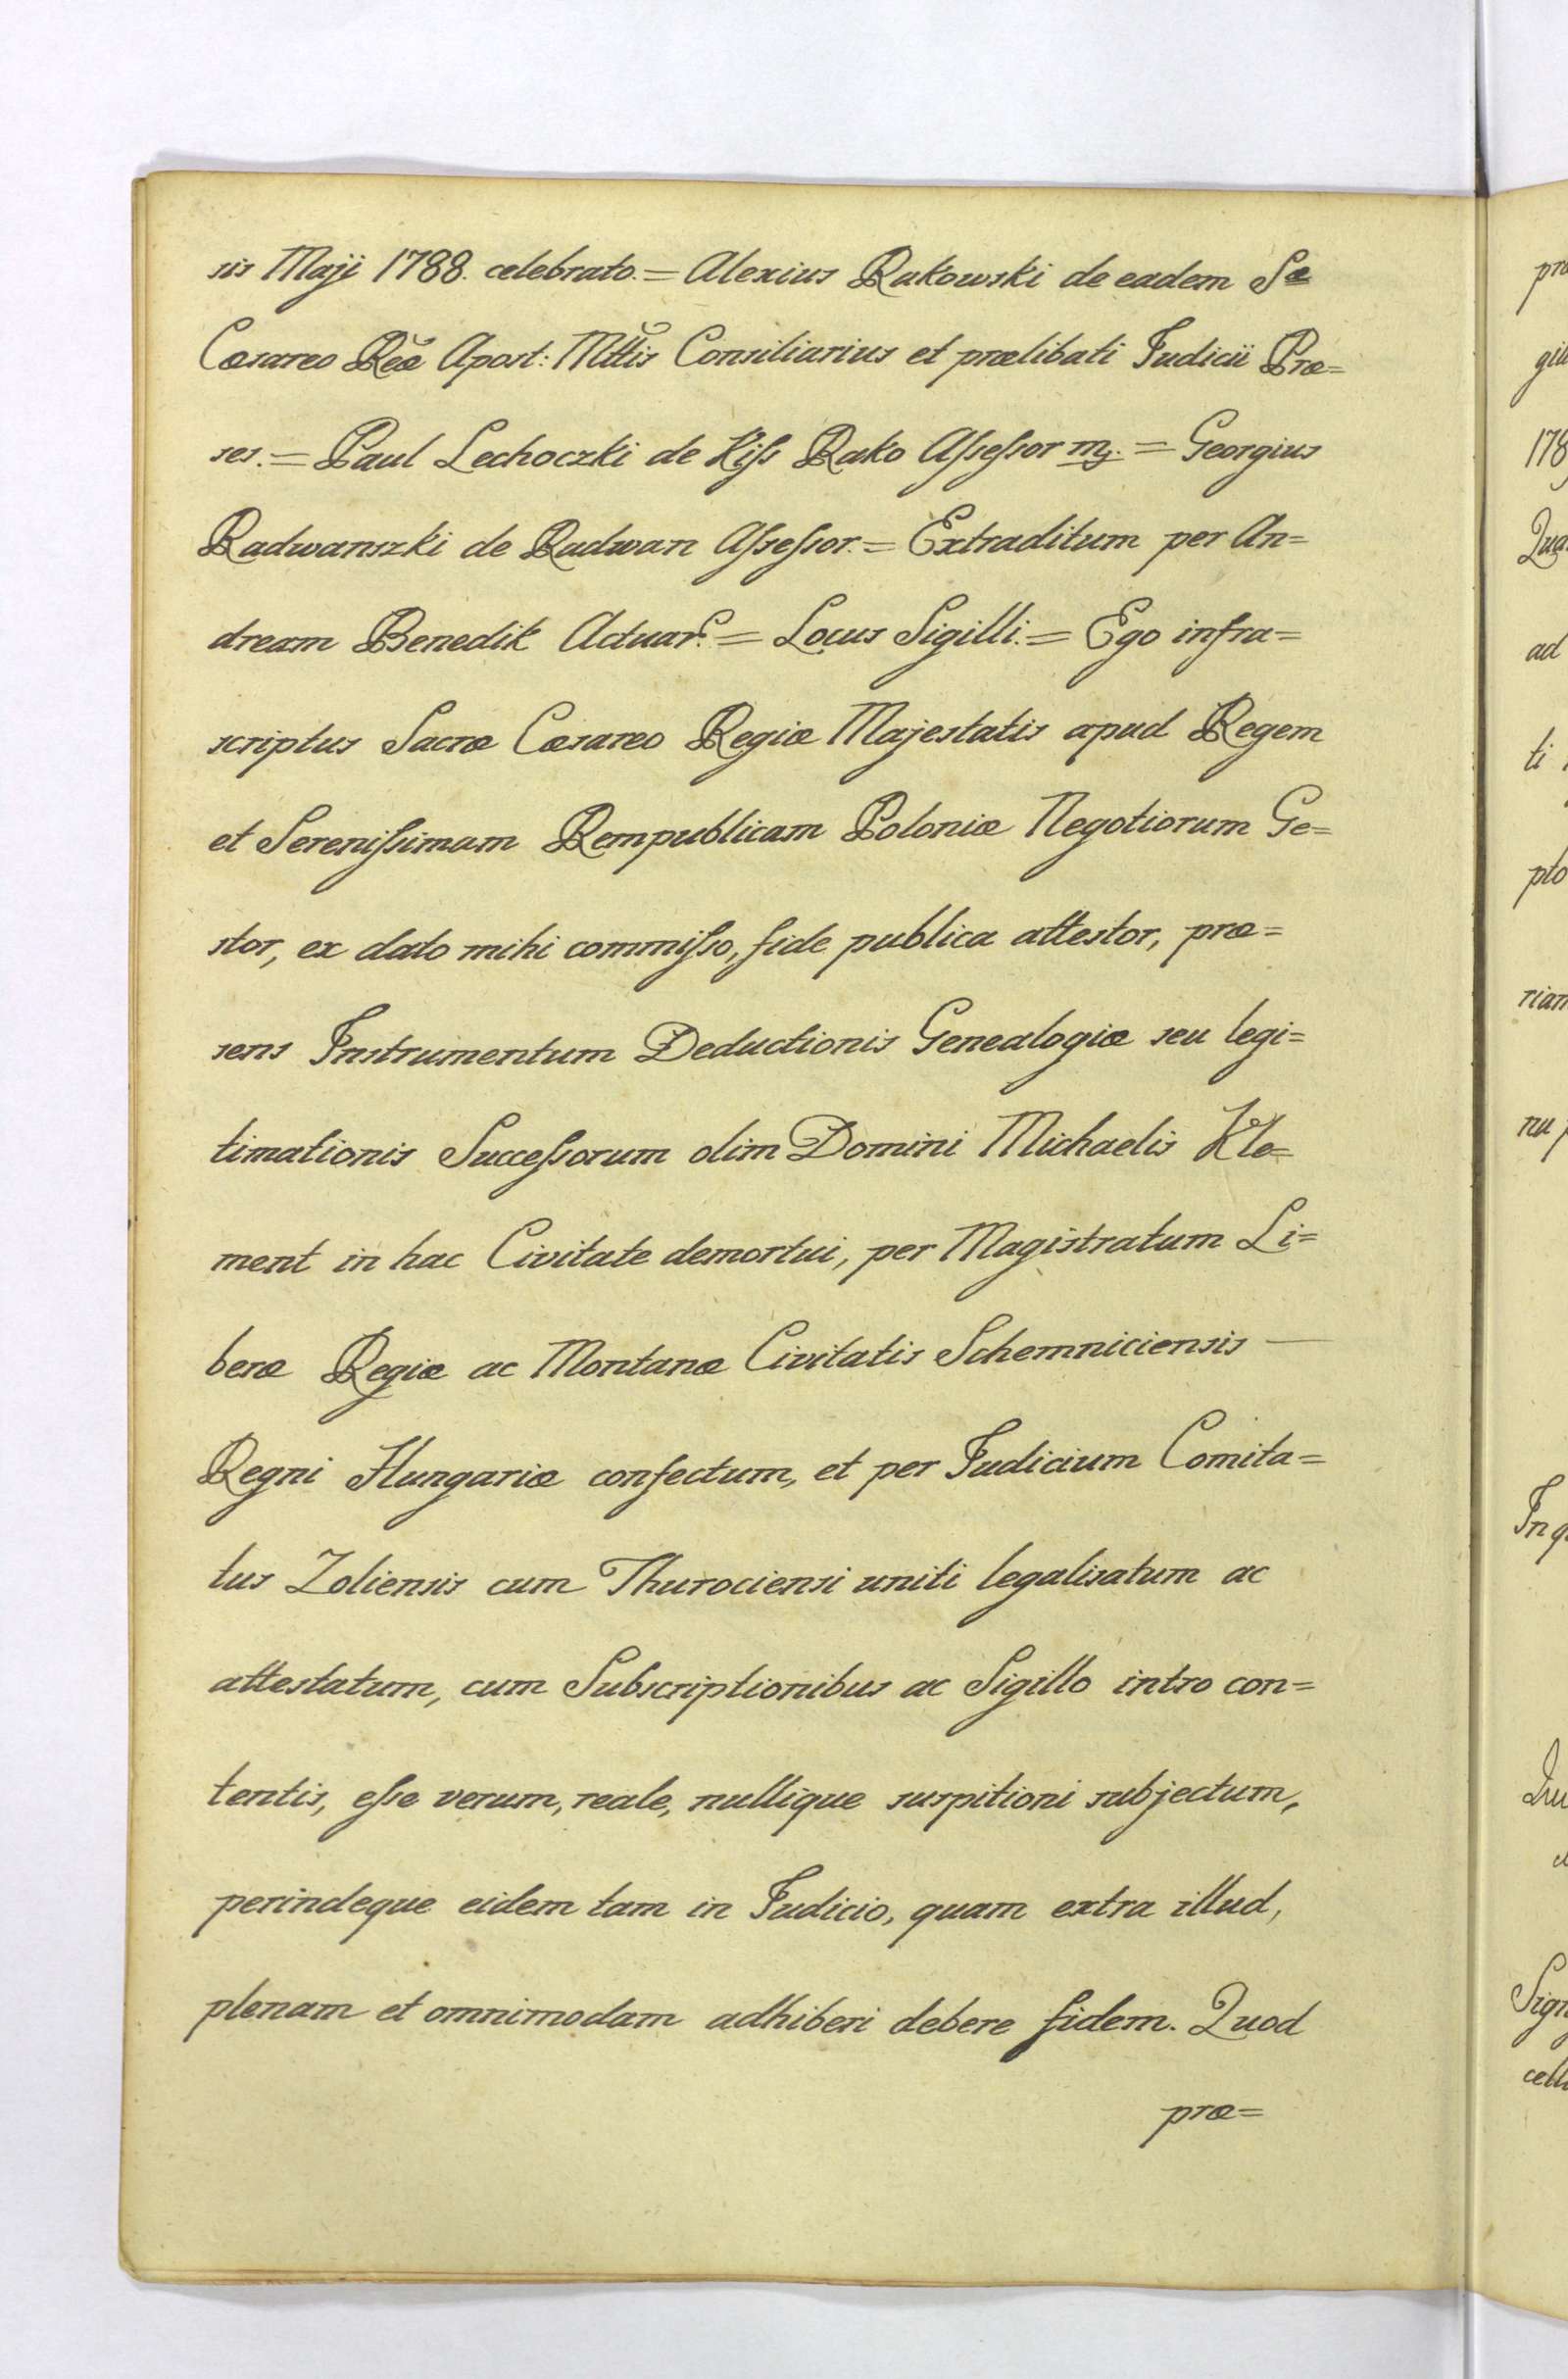 sis Maji 1788. celebrato. = Alexius Rakowski de eadem Sæ
Cæsareo Reæ Apost: Mttis Consiliarius et prælibati Judicii Præ=
ses. = Paul Lechoczki de Kiſs Rako Aſseſsor mp. = Georgius
Radwanszki de Radwan Aſseſsor. = Extraditum per An=
dream Benedik Actuar. = Locus Sigilli. = Ego infra=
scriptus Sacræ Cæsareo Regiæ Majestatis apud Regem
et Sereniſsimam Rempublicam Poloniæ Negotiorum Ge=
stor, ex dato mihi commiſso, fide publica attestor, præ=
sens Instrumentum Deductionis Genealogiæ seu legi=
timationis Succeſsorum olim Domini Michaelis Kle=
ment in hac Civitate demortui, per Magistratum Li=
beræ Regiæ ac Montanæ Civitatis Schemniciensis —
Regni Hungariæ confectum, et per Judicium Comita=
tus Zoliensis cum Thurociensi uniti legalisatum ac
attestatum, cum Subscriptionibus ac Sigillo intro con=
tentis, eſse verum, reale, nullique suspitioni subjectum,
perindeque eidem tam in Judicio, quam extra illud,
plenam et omnimodam adhiberi debere fidem. Quod
præ=